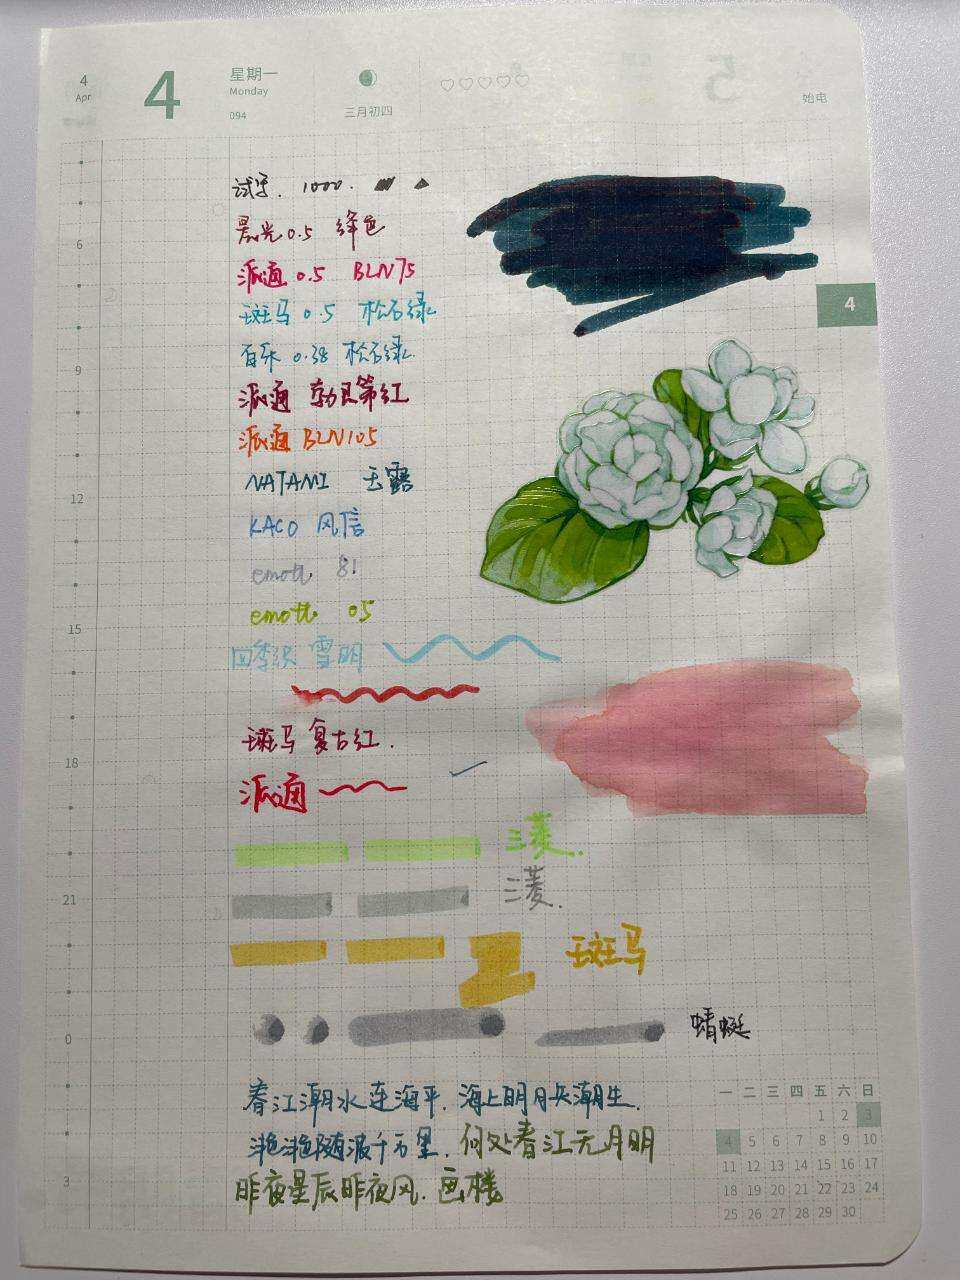 4
Apr
4
星期一
Monday
094
三月初四
始电
试字. 1000.
晨光0.5 绛色
派通 0.5 BLN75
斑马 0.5 松石绿
百乐 0.38 松石绿.
派通 勃艮第红
派通 BLN105
NATAMI 玉露
KACO 风信
emott. 8!
emott. 05
四季织 雪明
斑马 复古红.
派通
三菱..
三菱.
斑马
蜻蜓
春江潮水连海平. 海上明月共潮生.
滟滟随波千万里. 何处春江无月明
昨夜星辰昨夜风. 画楼
6
9
12
15
18
21
0
3
4
一 二 三 四 五 六 日
1 2 3
4 5 6 7 8 9 10
11 12 13 14 15 16 17
18 19 20 21 22 23 24
25 26 27 28 29 30